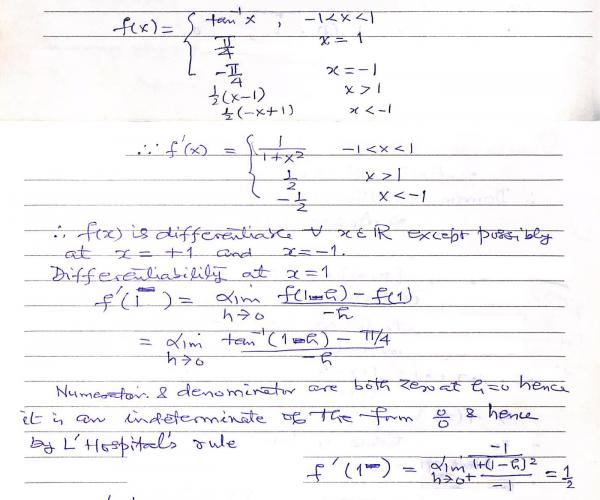 f(x) = { tan⁻¹x , -1<x<1
π/4 x = 1
-π/4 x = -1
1/2(x-1) x > 1
1/2(-x+1) x < -1
∴ f'(x) = { 1/(1+x²) -1<x<1
1/2 x > 1
-1/2 x < -1
∴ f(x) is differentiable ∀ x ∈ R except possibly
at x = +1 and x = -1.
Differentiability at x = 1
f'(1⁻) = lim h→0 (f(1-h) - f(1))/(-h)
= lim h→0 (tan⁻¹(1-h) - π/4)/(-h)
Numerator & denominator are both zero at h=0 hence
it is an indeterminate of the form 0/0 & hence
by L'Hospital's rule
f'(1⁻) = lim h→0+ (-1/(1+(1-h)²))/(-1) = 1/2